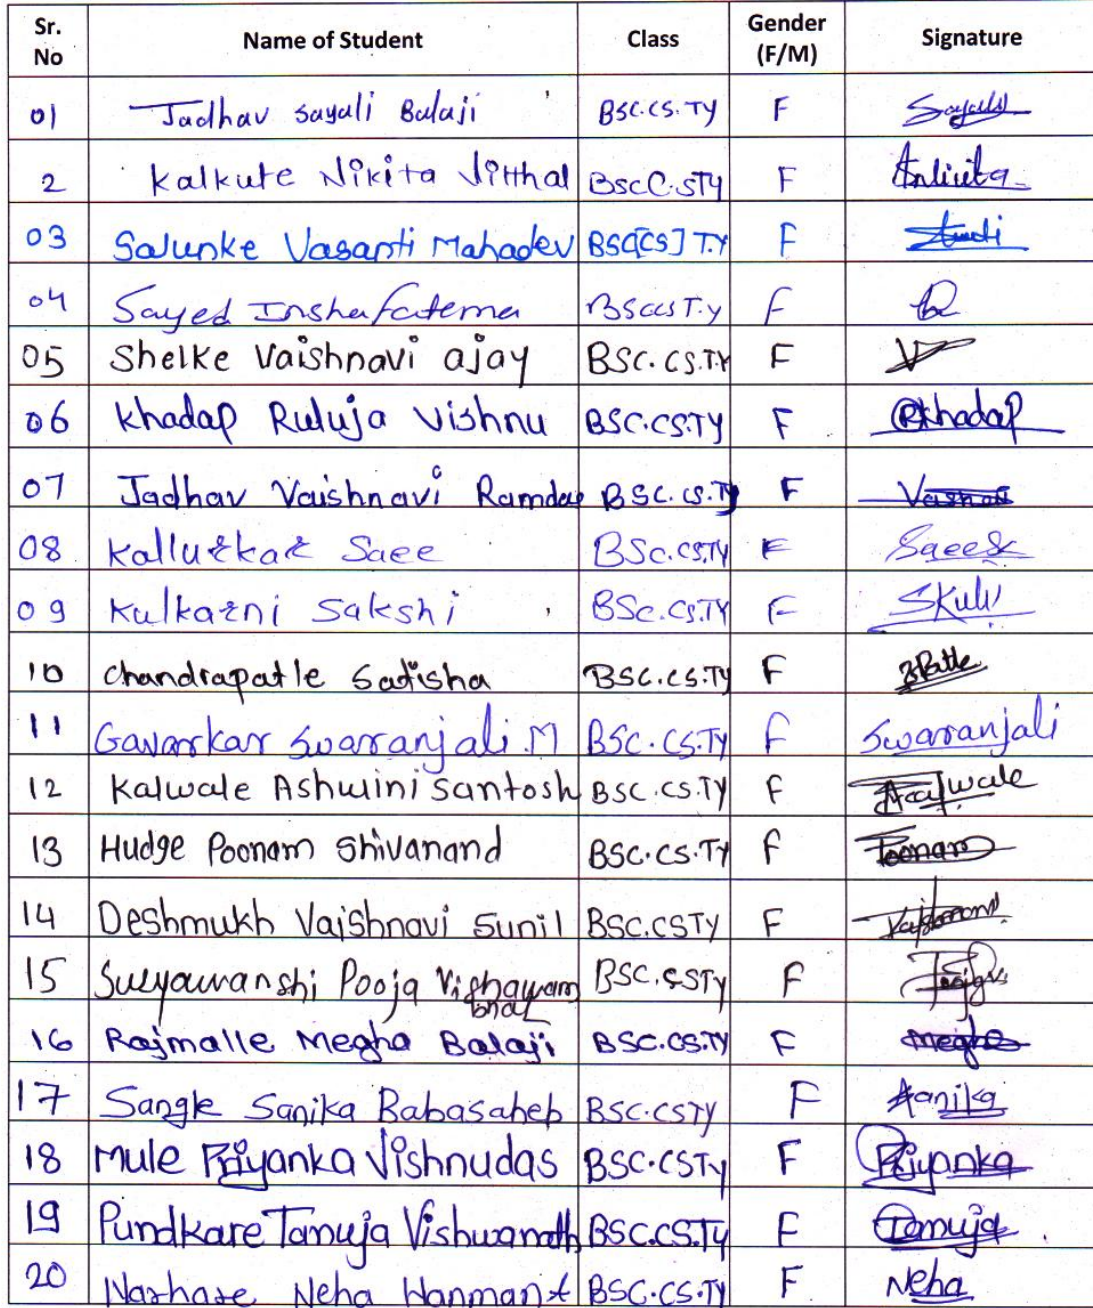 Sr. No Name of Student Class Gender (F/M) Signature
01 Jadhav Sayali Balaji BSC.CS.TY F Sayali
2 Kalkute Nikita Vitthal BscC.STY F
03 Salunke Vasanti Mahadev BSC[CS] T.Y F
04 Sayed Insha fatema BSCCS T.y F
05 Shelke Vaishnavi ajay BSC.CS.T.Y F
06 Khadap Rutuja Vishnu BSC.CS.TY F RKhadap
07 Jadhav Vaishnavi Ramdas BSC.CS.TY F
08 Kallurkar Saee BSc.CS.TY F Saee
09 Kulkarni Sakshi BSc.CS.TY F SKul
10 Chandrapatle Sadisha BSC.CS.TY F
11 Gavarkar Swaranjali.M BSC.CS.TY F Swaranjali
12 Kalwale Ashwini Santosh BSC.CS.TY F
13 Hudge Poonam Shivanand BSC.CS.TY F Poonam
14 Deshmukh Vaishnavi Sunil BSC.CSTY F
15 Suryawanshi Pooja BSC.CSTY F
16 Rajmalle Megha Balaji BSC.CS.TY F Megha
17 Sangle Sanika Babasaheb BSC.CSTY F Sanika
18 Mule Priyanka Vishnudas BSC.CSTY F Priyanka
19 Pundkare Tanuja Vishwanath BSC.CS.TY F Tanuja
20 Narhare Neha Hanmant BSC.CS.TY F Neha